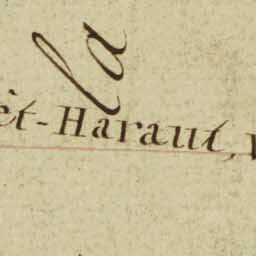 la
êt-Haraut,